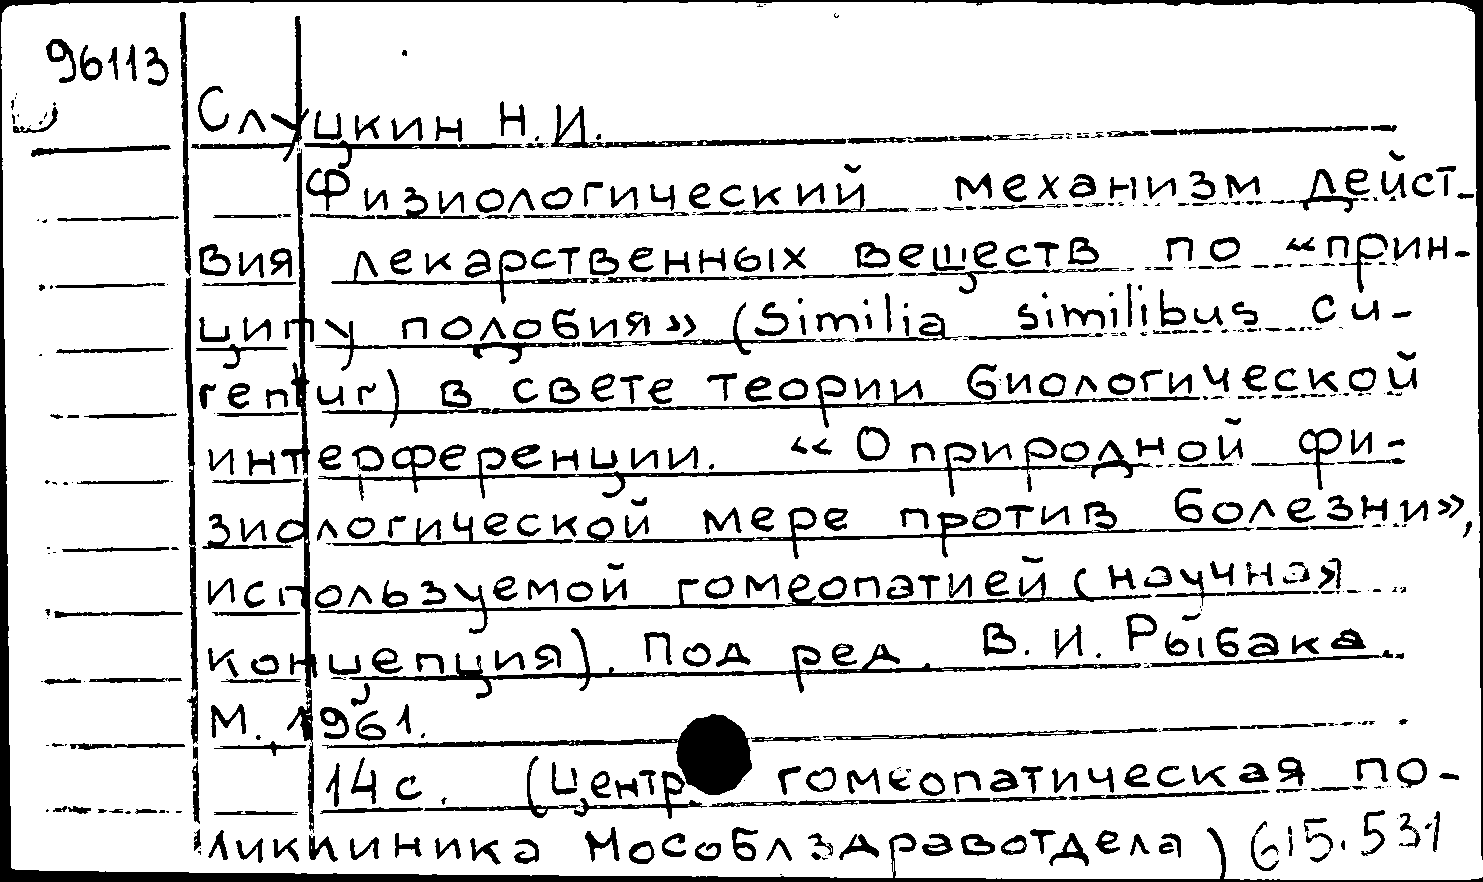 96113
Слуцкин Н.И.
Физиологический механизм дейст-
вия лекарственных веществ по «прин-
ципу подобия» (Similia similibus cu-
rentur) в свете теории биологической
интерференции. «О природной фи-
зиологической мере против болезни»,
используемой гомеопатией (научная
концепция). Под ред. В.И. Рыбака.
М., 1961.
14 с. (Центр. гомеопатическая по-
ликлиника Мособлздравотдела) 615.531